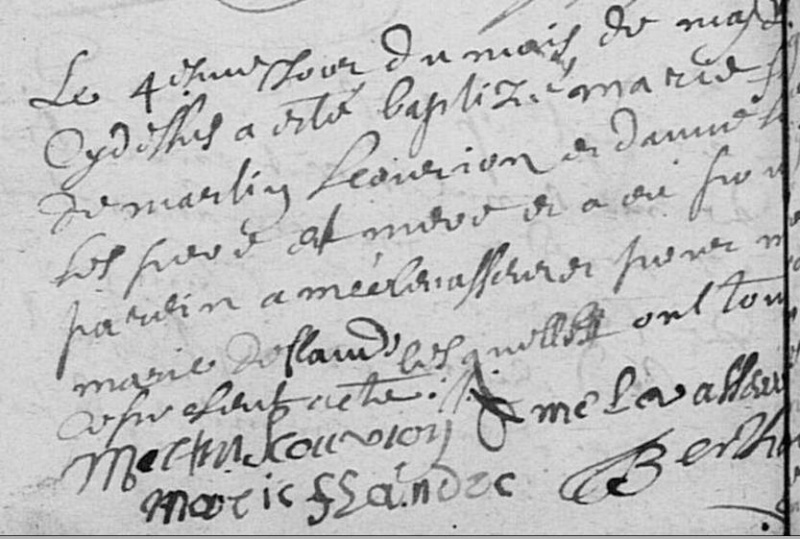 Le 4eme Jour du mois de may
Cydessus a esté baptizé marie
de martin Leouvrion et d'anne
ses pere et mere et a eu pour
parein amé levasseur et pour
marie deflandre lesquelles ont tous
ce present acte
Martin Leouvrion ame Levasseur
Marie flandre Berth